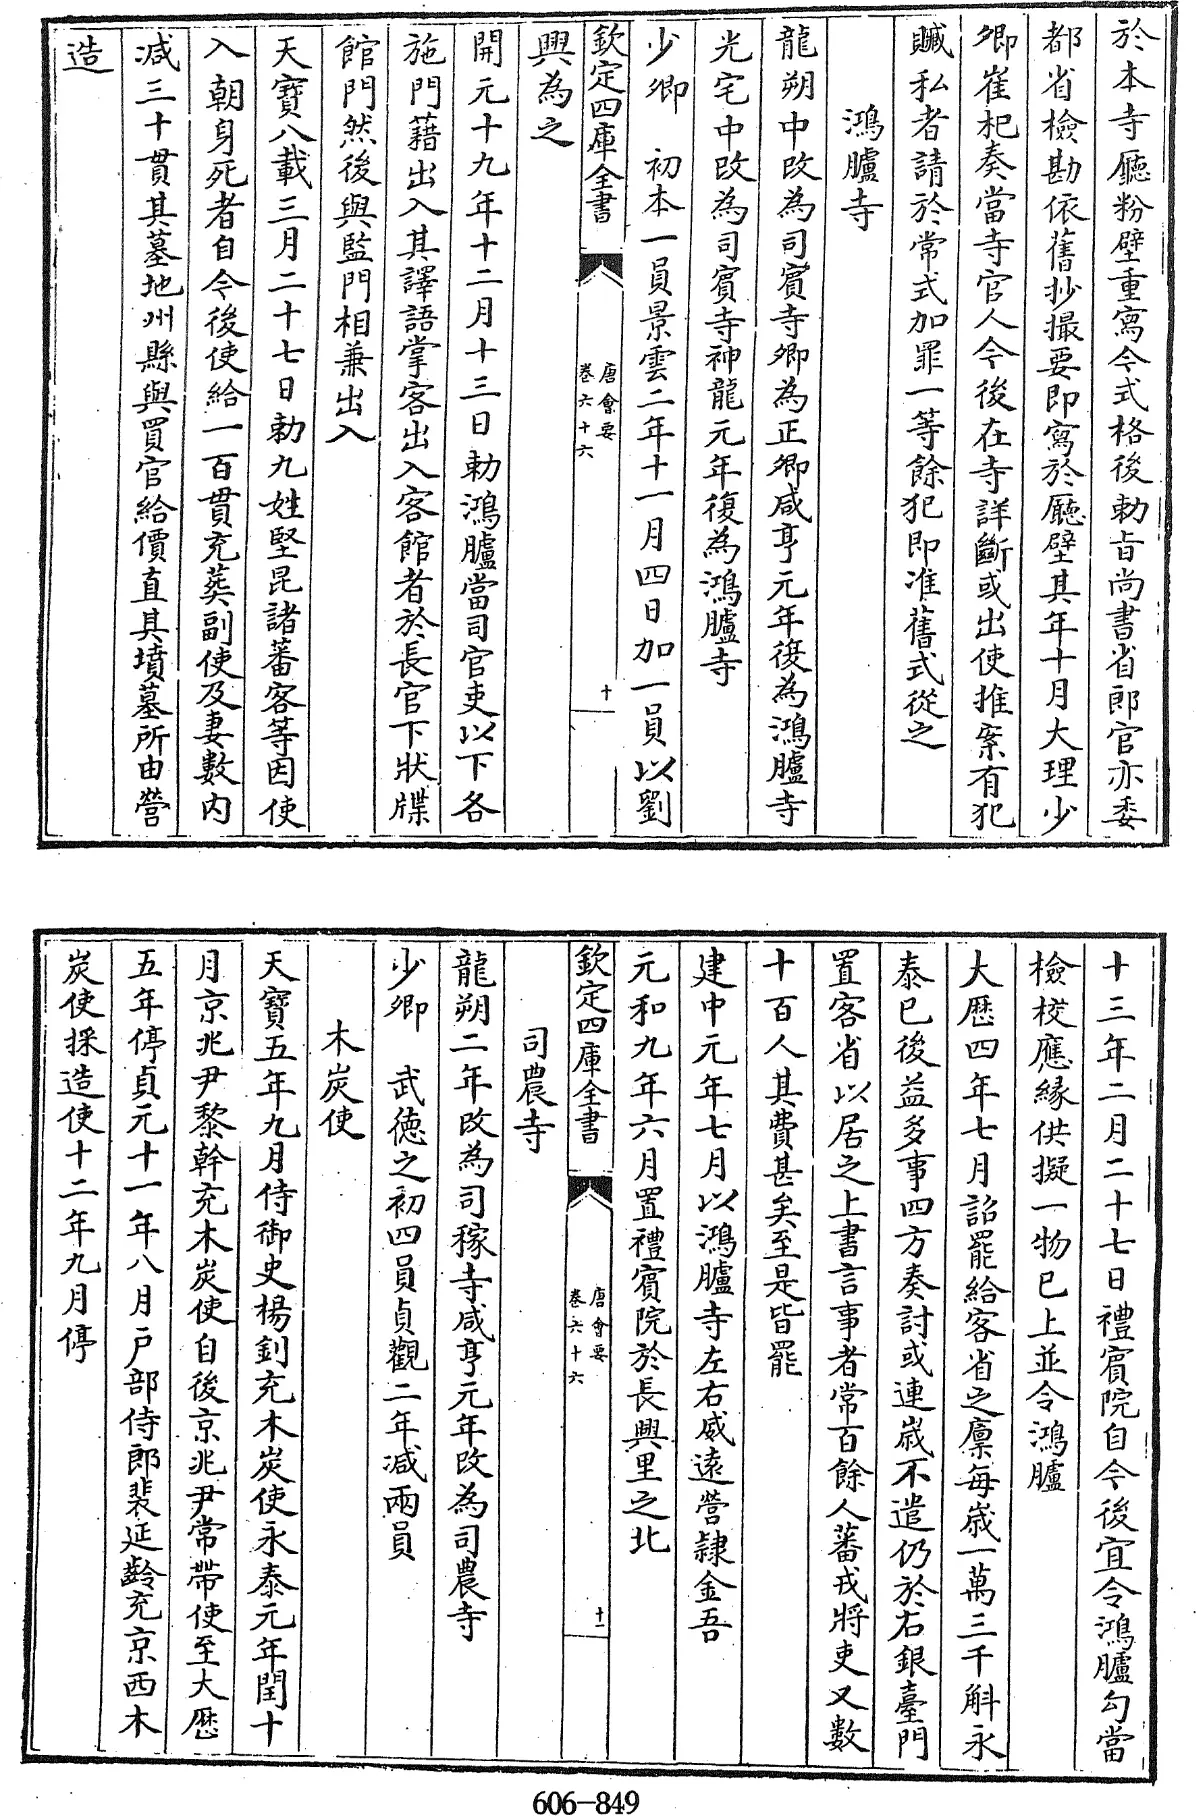 於本寺廳粉壁重寫令式格後勅㫖尚書省郎官亦委
都省檢勘依舊抄撮要即寫於廳壁其年十月大理少
卿崔杞奏當寺官人今後在寺詳斷或出使推案有犯
贓私者請於常式加罪一等餘犯即准舊式從之
鴻臚寺
龍朔中改為司賓寺卿為正卿咸亨元年復為鴻臚寺
光宅中改為司賓寺神龍元年復為鴻臚寺
少卿　初本一員景雲二年十一月四日加一員以劉
欽定四庫全書
唐會要
卷六十六
十
興為之
開元十九年十二月十三日勅鴻臚當司官吏以下各
施門藉出入其譯語掌客出入客館者於長官下狀牒
館門然後與監門相兼出入
天寶八載三月二十七日勅九姓堅昆諸蕃客等因使
入朝身死者自今後使給一百貫充葬副使及妻數內
減三十貫其墓地州縣與買官給價直其墳墓所由營
造
十三年二月二十七日禮賓院自今後宜令鴻臚勾當
檢校應緣供擬一物已上並令鴻臚
大歷四年七月詔罷給客省之廩每歲一萬三千斛永
泰已後益多事四方奏討或連歲不遣仍於右銀臺門
置客省以居之上書言事者常百餘人蕃戎將吏又數
十百人其費甚矣至是皆罷
建中元年七月以鴻臚寺左右威遠營隸金吾
元和九年六月置禮賓院於長興里之北
欽定四庫全書
唐會要
卷六十六
十一
司農寺
龍朔二年改為司稼寺咸亨元年改為司農寺
少卿　武德之初四員貞觀二年減兩員
木炭使
天寶五年九月侍御史楊釗充木炭使永泰元年閏十
月京兆尹黎幹充木炭使自後京兆尹常帶使至大歷
五年停貞元十一年八月戶部侍郎裴延齡充京西木
炭使採造使十二年九月停
606-849